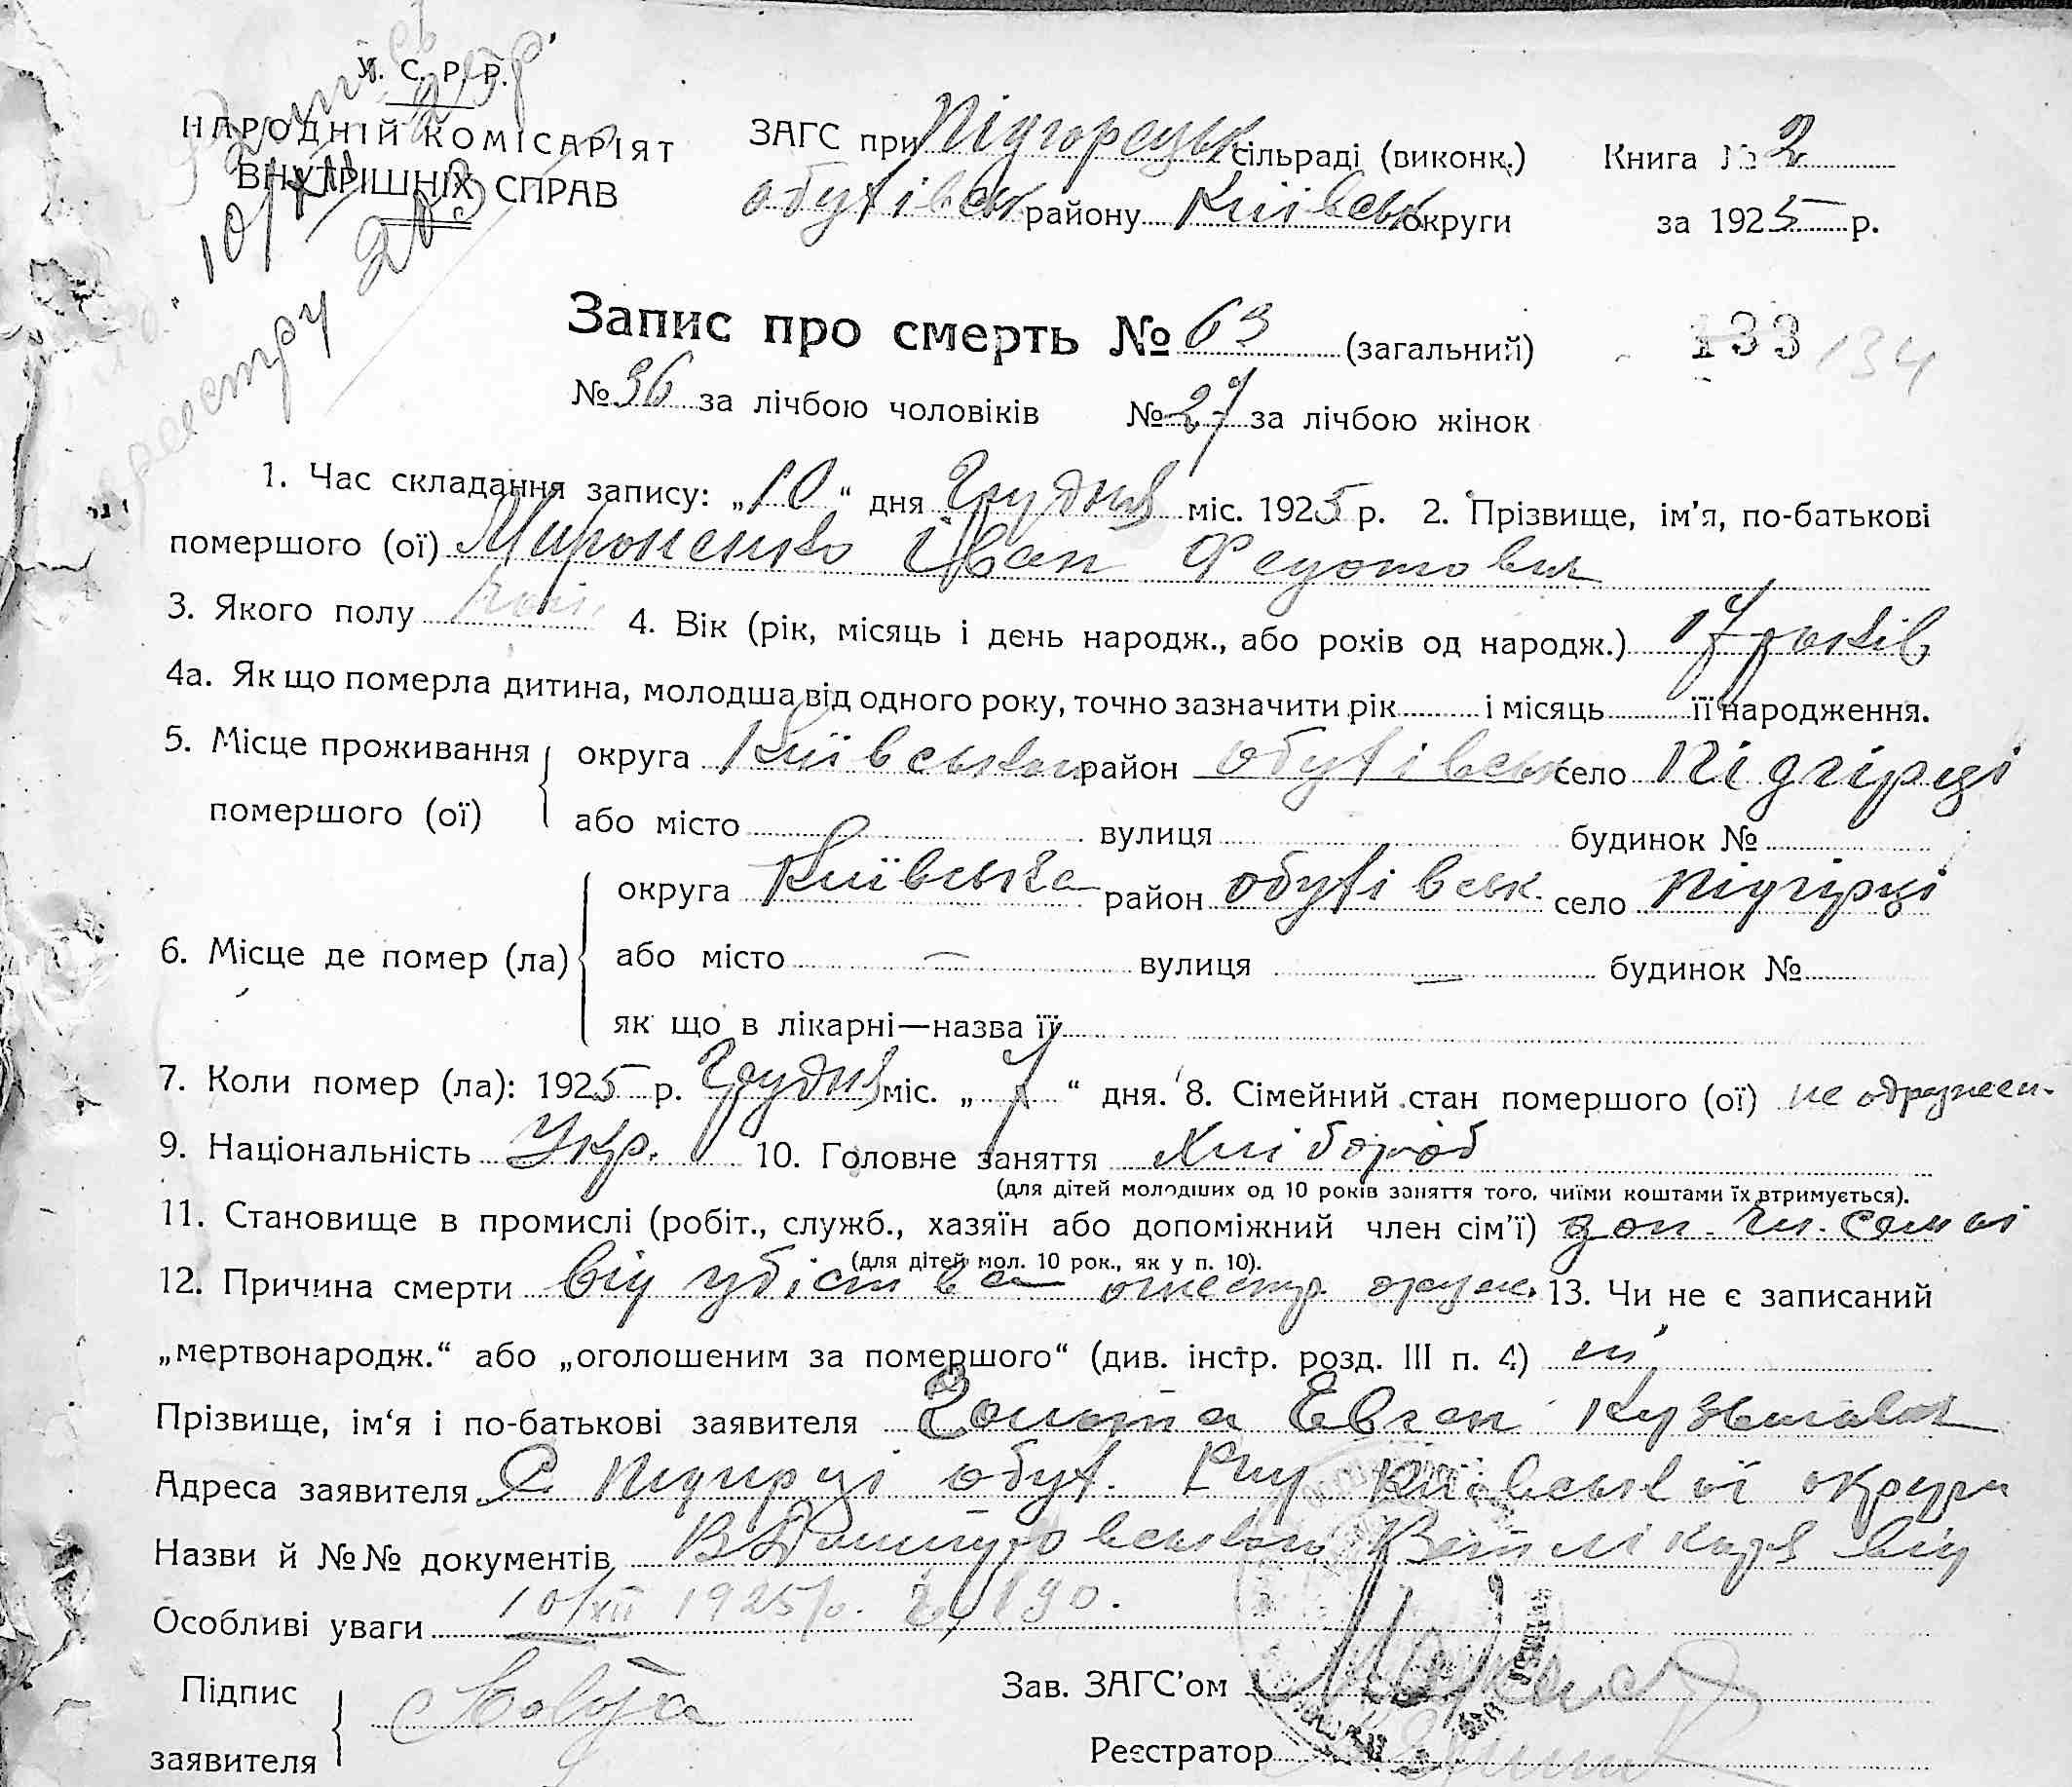 У. С. Р. Р.
НАРОДНІЙ КОМІСАРІЯТ
ВНУТРІШНІХ СПРАВ
10/XII
реєстру 203
ЗАГС при Підгорецьк сільраді (виконк.) Книга № 2
обухівськ району Київськ округи за 1925 р.
Запис про смерть № 63 (загальний) 133 134
№ 36 за лічбою чоловіків № 27 за лічбою жінок
1. Час складання запису: „10“ дня Грудня міс. 1925 р. 2. Прізвище, ім’я, по-батькові
помершого (ої) Мироненко Іван Федотович
3. Якого полу чол. 4. Вік (рік, місяць і день народж., або років од народж.) 17 років
4а. Як що померла дитина, молодша від одного року, точно зазначити рік і місяць її народження.
5. Місце проживання округа Київська район обухівськ село Підгірці
помершого (ої) або місто вулиця будинок №
округа Київська район обухівськ. село Підгірці
6. Місце де помер (ла) або місто — вулиця — будинок №
як що в лікарні—назва її
7. Коли помер (ла): 1925 р. Грудня міс. „7“ дня. 8. Сімейний стан помершого (ої) не одружен.
9. Національність Укр. 10. Головне заняття Хлібороб
(для дітей молодших од 10 років заняття того, чиїми коштами їх втримується).
11. Становище в промислі (робіт., служб., хазяїн або допоміжний член сім’ї) доп. чл. семьі
(для дітей мол. 10 рок., як у п. 10).
12. Причина смерти від убіства огнестр. оруж. 13. Чи не є записаний
„мертвонародж.“ або „оголошеним за помершого“ (див. інстр. розд. III п. 4) ні
Прізвище, ім‘я і по-батькові заявителя Евген Кузьмович
Адреса заявителя С. Підгірці обух. Київської округи
Назви й №№ документів лікаря від
10/XII 1925 р. № 190.
Особливі уваги
Підпис
заявителя
Зав. ЗАГС’ом
Реєстратор